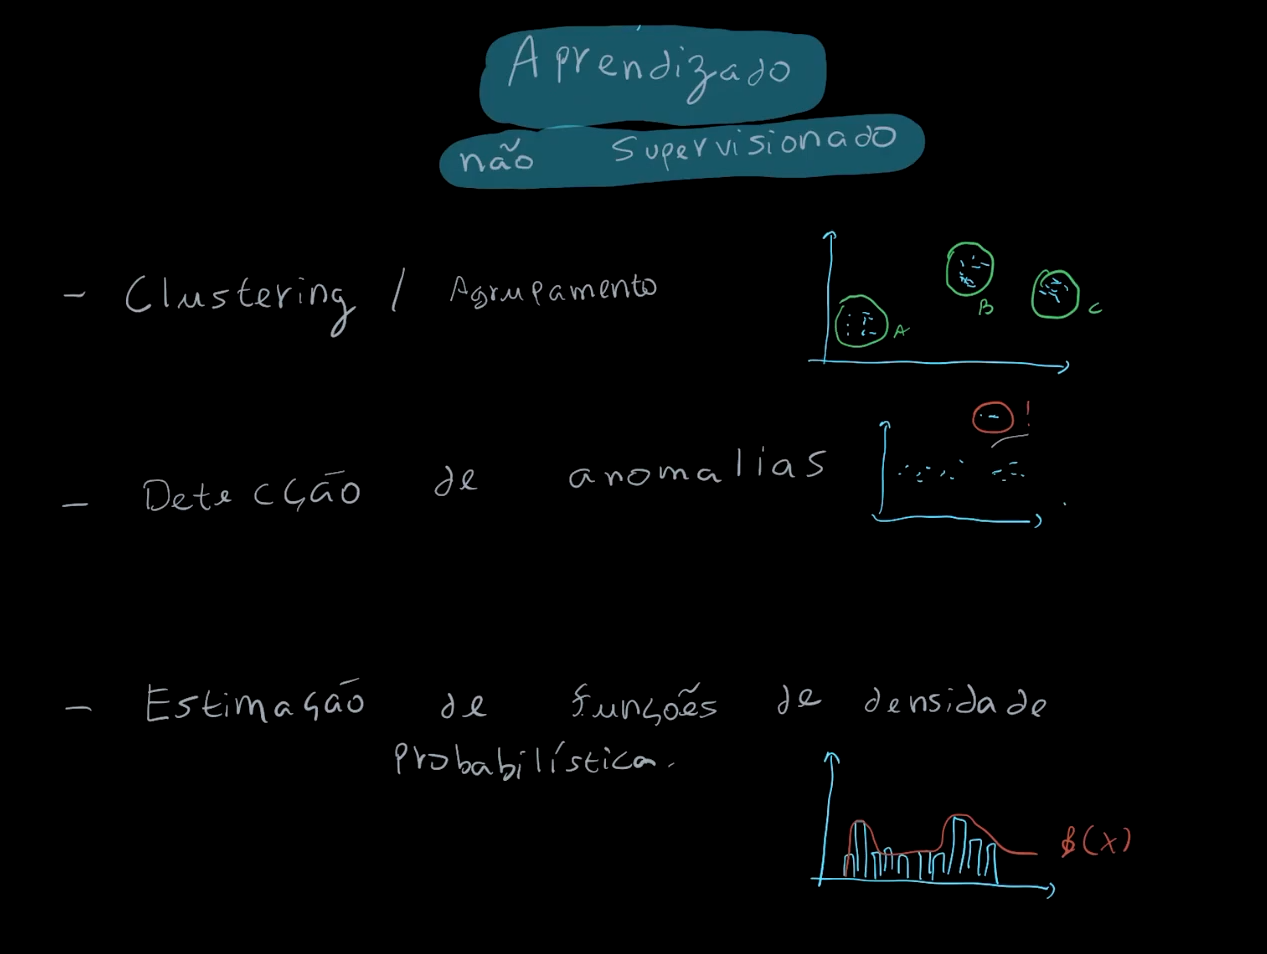 Aprendizado
não Supervisionado
- Clustering / Agrupamento
A
B
C
!
- Detecção de anomalias
- Estimação de funções de densidade
probabilística.
f(x)